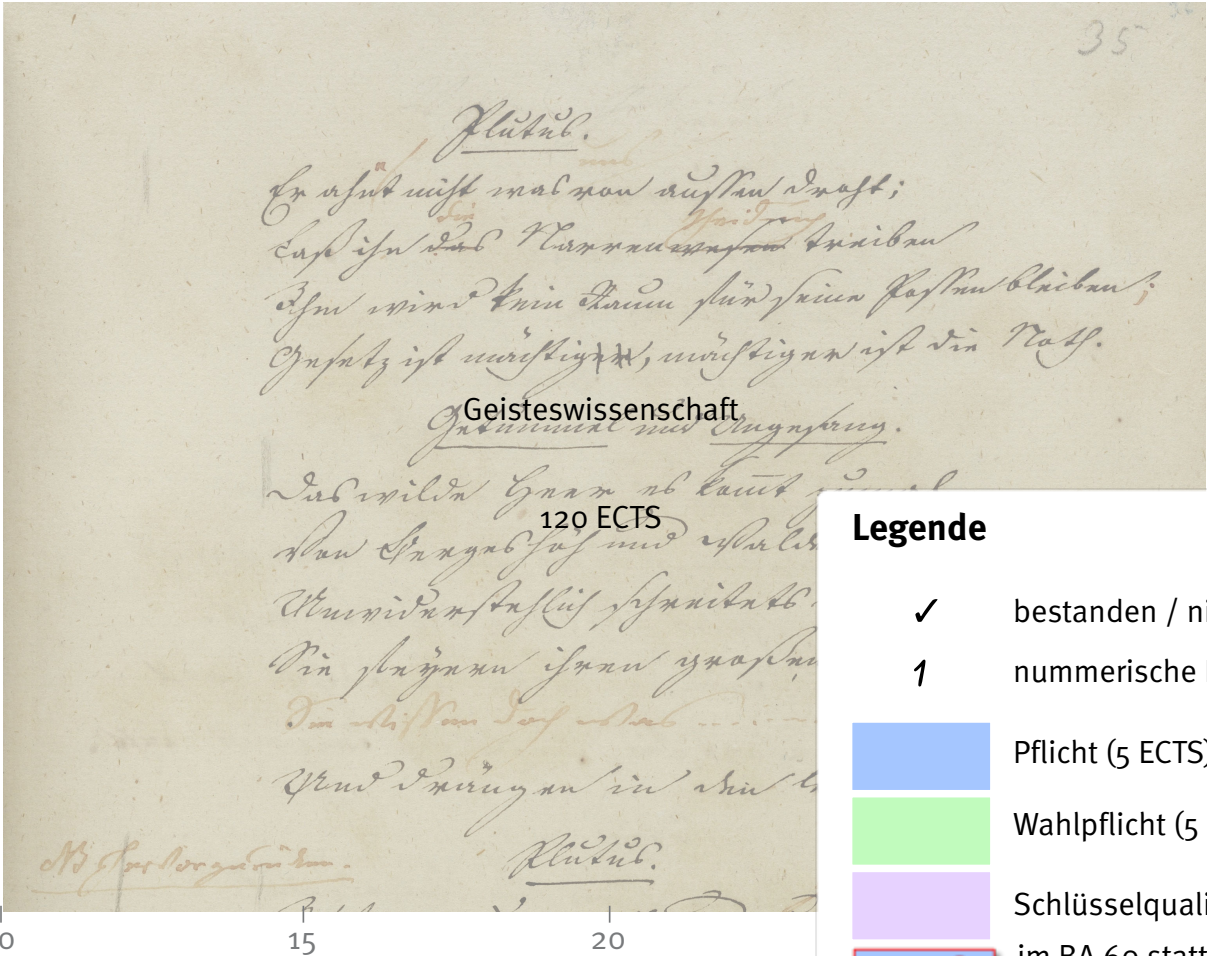 35
Plutus.
uns
Er ahnt nicht was von aussen droht;
die
Laß ihn das Narrenwesen treiben
Ihm wird kein Raum für seine Possen bleiben;
Gesetz ist mächtiger, mächtiger ist die Noth.
Geisteswissenschaft
Getümmel und Gesang.
Das wilde Heer es kommt zumal
120 ECTS
Von Berges Höh und Wald
Unwiderstehlich schreitets
Sie feyern ihren großen
Sie wissen doch was
Und drängen in den
NB
Plutus.
15
20
Legende
✓ bestanden / ni
1 nummerische
Pflicht (5 ECTS)
Wahlpflicht (5
Schlüsselquali
im BA 60 statt